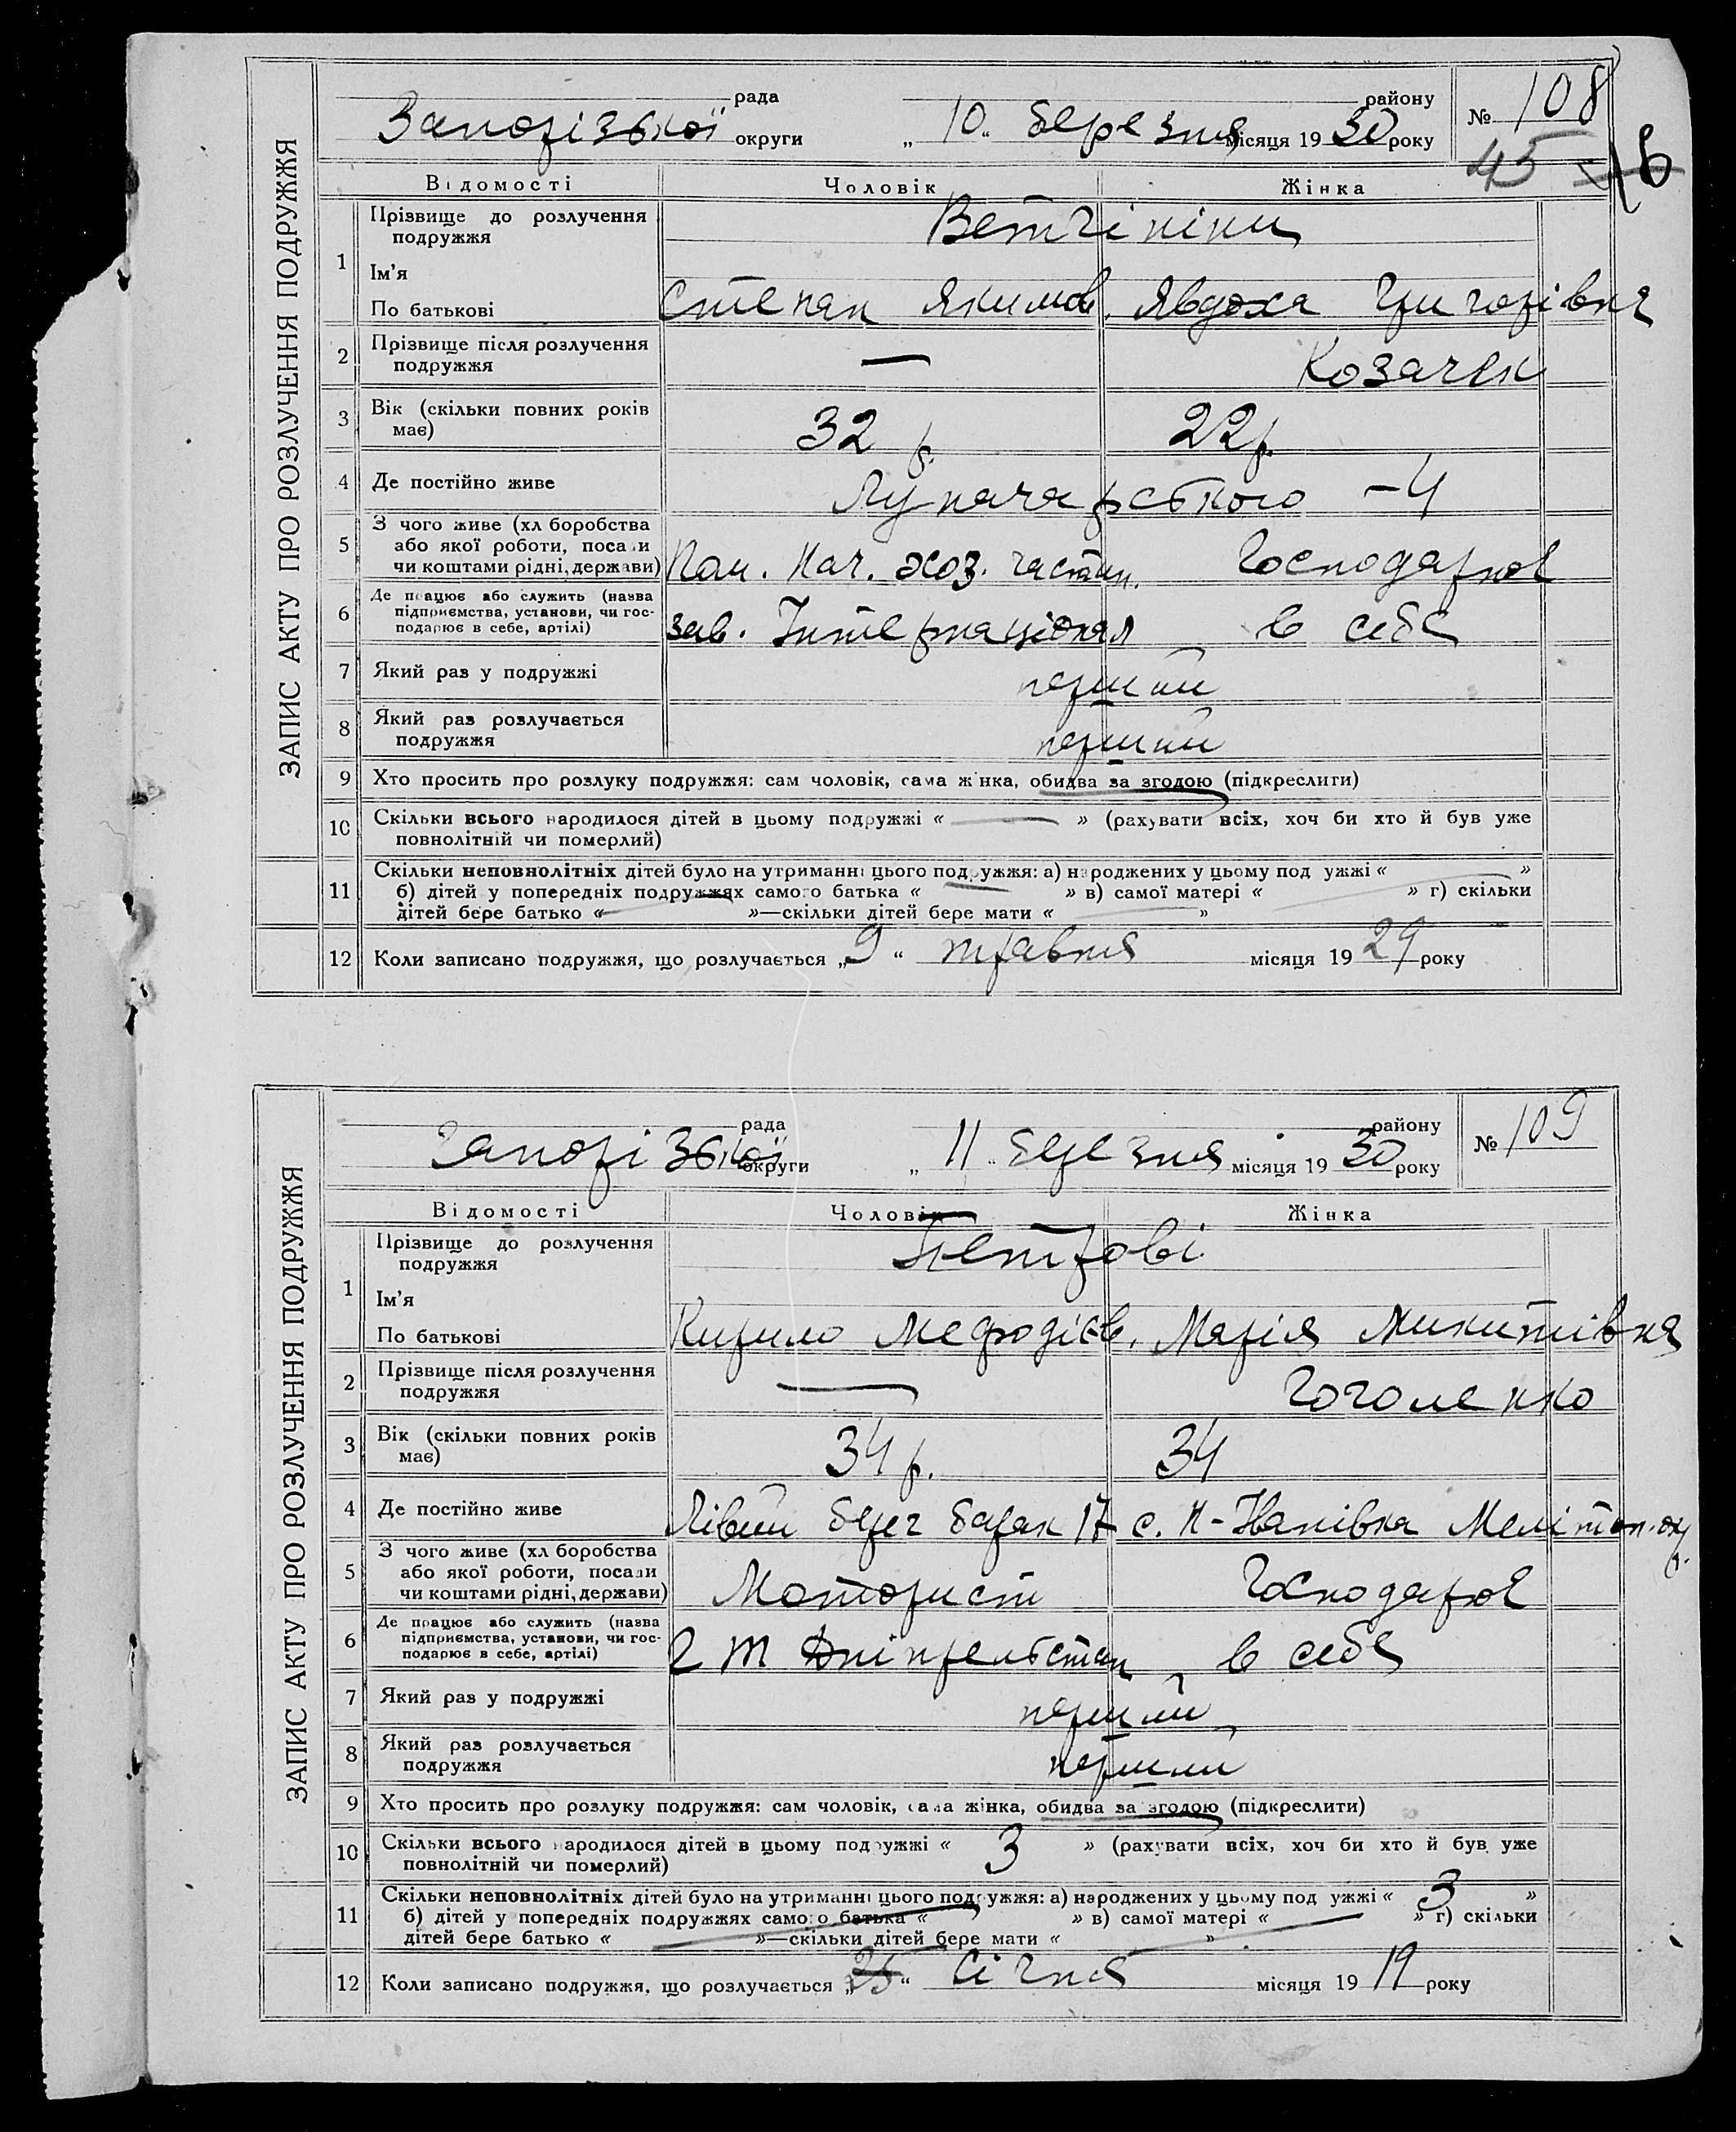 ЗАПИС АКТУ ПРО РОЗЛУЧЕННЯ ПОДРУЖЖЯ
рада району № 108
Запорізької округи „ 10 „ березня місяця 19 30 року
45
Відомості Чоловік Жінка
1 Прізвище до розлучення подружжя Ветчініни
Ім’я
По батькові Степан Якимов. Явдоха Григорівна
2 Прізвище після розлучення подружжя — Козачек
3 Вік (скільки повних років має) 32 р. 22 р.
4 Де постійно живе Луначарського – 4
5 З чого живе (хл боробства або якої роботи, посади чи коштами рідні, держави) Пом. Нач. хоз. частин. Господарює
6 Де працює або служить (назва підприємства, установи, чи господарює в себе, артілі) зав. Інтернаціонал в себе
7 Який раз у подружжі перший
8 Який раз розлучається подружжя перший
9 Хто просить про розлуку подружжя: сам чоловік, сама жінка, обидва за згодою (підкреслити)
10 Скільки всього народилося дітей в цьому подружжі « — » (рахувати всіх, хоч би хто й був уже
повнолітній чи померлий)
11 Скільки неповнолітніх дітей було на утриманні цього подружжя: а) народжених у цьому под ужжі « — »
б) дітей у попередніх подружжях самого батька « — » в) самої матері « — » г) скільки
дітей бере батько « — »—скільки дітей бере мати « — »
12 Коли записано подружжя, що розлучається „ 9 “ травня місяця 19 29 року
ЗАПИС АКТУ ПРО РОЗЛУЧЕННЯ ПОДРУЖЖЯ
рада району № 109
Запорізької округи „ 11 „ березня місяця 19 30 року
Відомості Чоловік Жінка
1 Прізвище до розлучення подружжя Петрові
Ім’я
По батькові Кирило Мефодієв. Марія Микитівна
2 Прізвище після розлучення подружжя — Гоголенко
3 Вік (скільки повних років має) 34 р. 34
4 Де постійно живе Лівий берег барак 17 с. Н-Іванівка Мелітоп. окр.
5 З чого живе (хл боробства або якої роботи, посади чи коштами рідні, держави) Моторист Господарює
6 Де працює або служить (назва підприємства, установи, чи господарює в себе, артілі) 2 в себе
7 Який раз у подружжі перший
8 Який раз розлучається подружжя перший
9 Хто просить про розлуку подружжя: сам чоловік, сама жінка, обидва за згодою (підкреслити)
10 Скільки всього народилося дітей в цьому подружжі « 3 » (рахувати всіх, хоч би хто й був уже
повнолітній чи померлий)
11 Скільки неповнолітніх дітей було на утриманні цього подружжя: а) народжених у цьому под ужжі « 3 »
б) дітей у попередніх подружжях самого батька « — » в) самої матері « — » г) скільки
дітей бере батько « — »—скільки дітей бере мати « — »
12 Коли записано подружжя, що розлучається „ 25 “ січня місяця 19 19 року